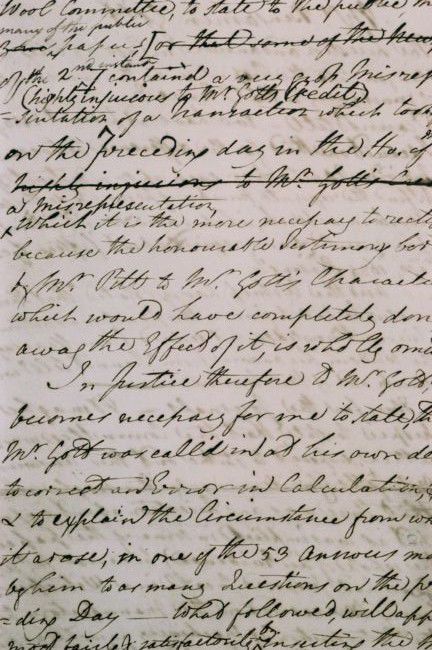 Wool Committee, to state to the public
many of the public
papers [or that some of the News
of the 2nd instant] contained a very gross Misrep
(highly injurious to Mr Gott's Credit)
=sentation of a Transaction which took
on the preceding day in the Ho. of
highly injurious to Mr. Gott's
a Misrepresentation
which it is the more necessary to
because the honourable Testimony
by Mr. Pitt to Mr. Gott's Characte
which would have completely don
away the Effect of it, is wholly omi
In Justice therefore to Mr. Gott
becomes necessary for me to state, th
Mr. Gott was call'd in at his own de
to correct an Error in Calculation,
& to explain the Circumstance from
it arose, in one of the 53 answers ma
by him to as many Questions on the p
=ding Day — What followed, will app
most fairly & satisfactorily by Inserting the